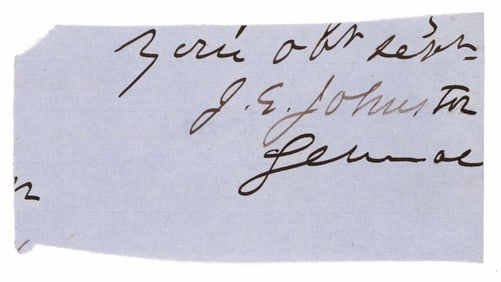 Your obt servt
J. E. Johnston
General